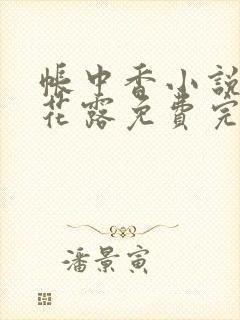 帳中香小說
花露免費完
潘景寅